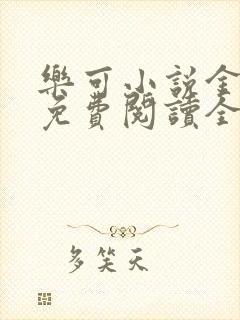 樂可小說全
免費閱讀全
多笑天